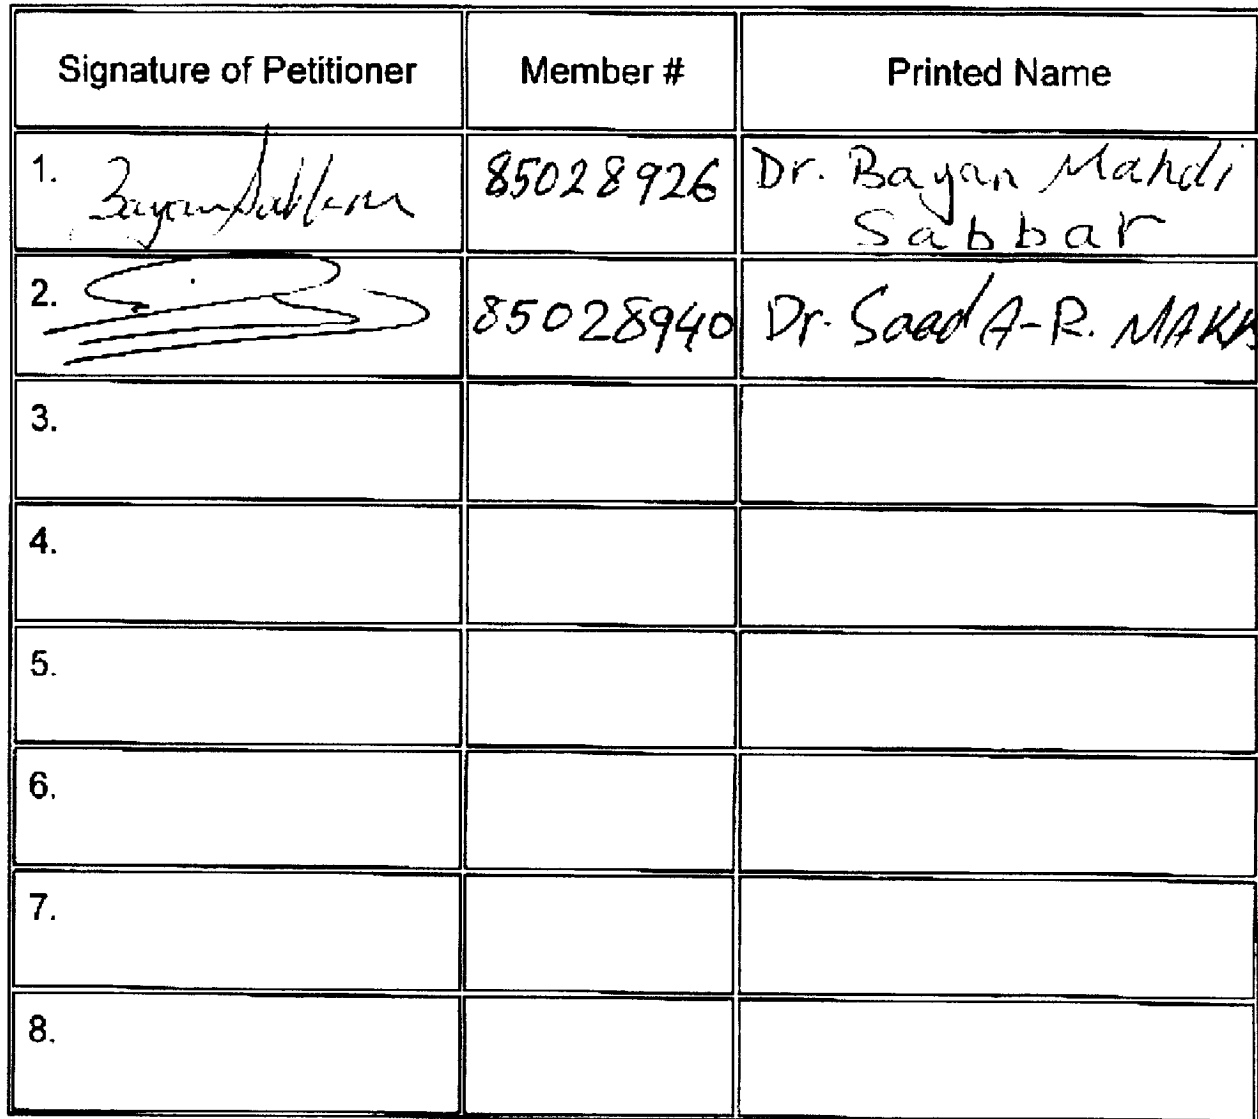 Signature of Petitioner Member # Printed Name
1. 85028926 Dr. Bayan Mahdi
Sabbar
2. 85028940 Dr. Saad A-R.
3.
4.
5.
6.
7.
8.